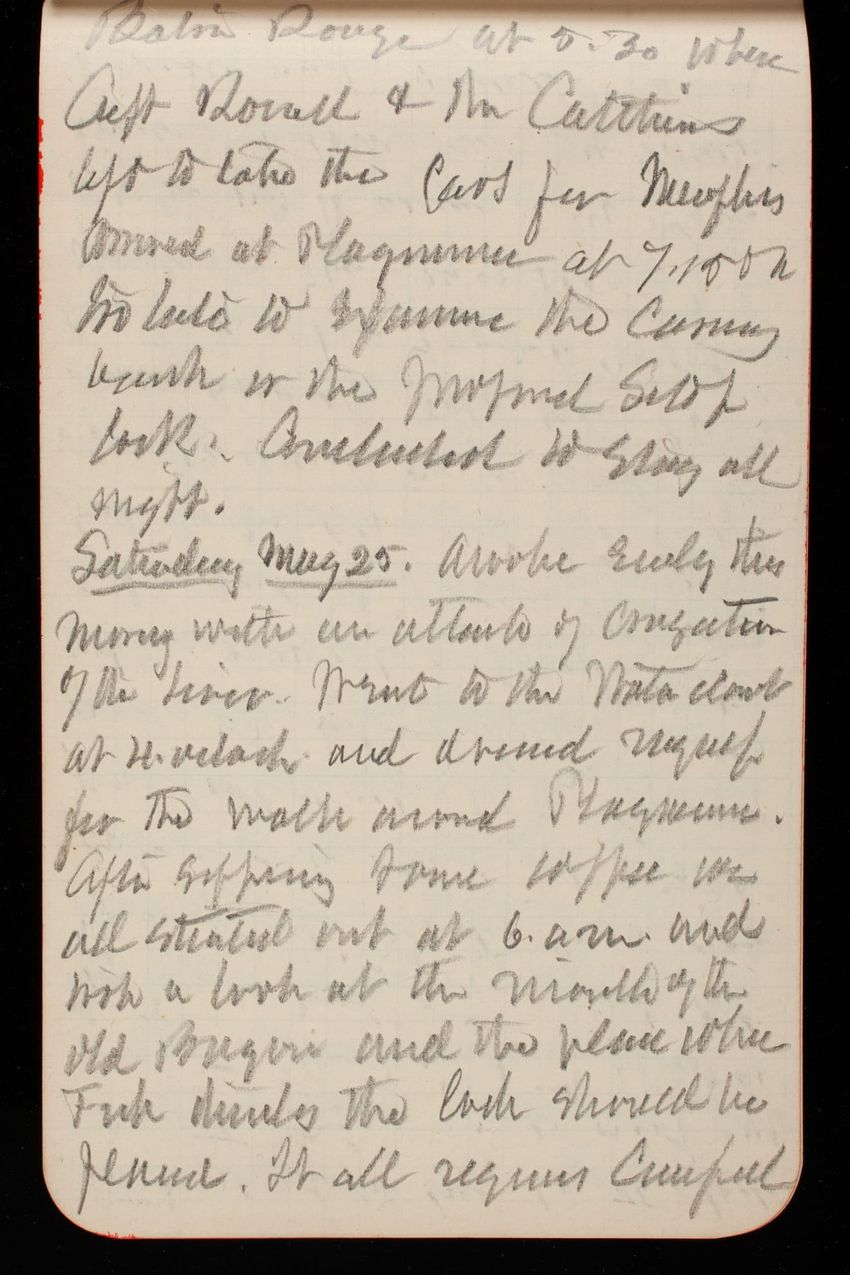 Baton Rouge at 5.30 where
Capt Rowell & Mr Catchings
left to take the Cars for Memphis
Arrived at Plaquemine at 7.15 
too late to Examine the Caving
bank or the proposed Site of
lock. Concluded to Stay all
night.
Saturday May 25. Awoke Early this
morng with an attack of Congestion
of the Liver. Went to the Water closet
at 4. oclock and dressed myself
for the walk around Plaquemine.
After sipping some coffee we
all started out at 6. a.m. and
took a look at the mouth of the
old Bayou and the place where
thinks the lock should be
placed. It all requires Careful